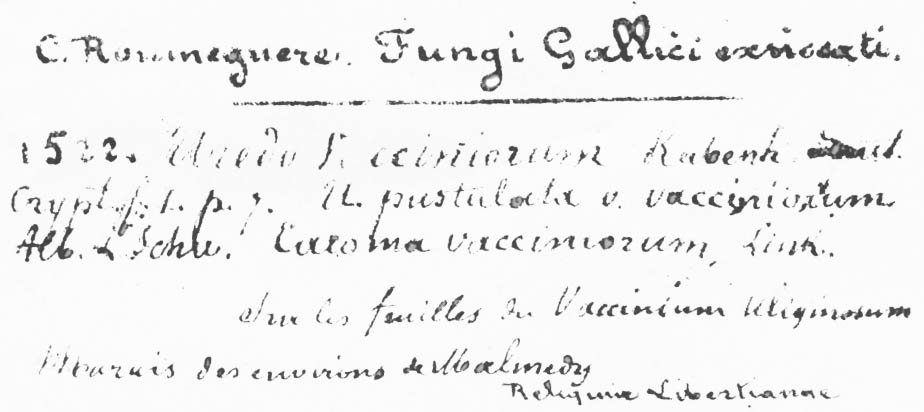 C. Roumeguere. Fungi Gallici exsiccati.
1522. Uredo Vacciniorum Rabenh.
Crypt. fl. 1. p. 7. U. pustulata v. vacciniorum
Alb. & Schw. Caeoma vacciniorum, Link.
Sur les feuilles du Vaccinium uliginosum
Marais des environs de Malmedy
Reliquiae Libertianae